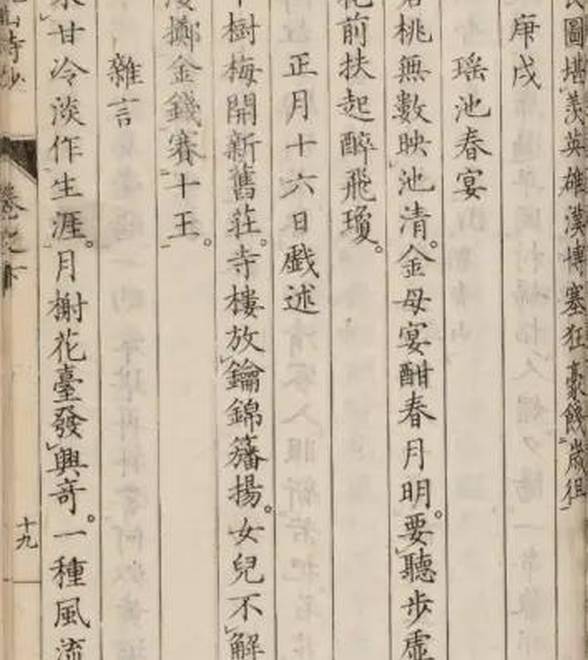 圖堪羨英雄漢博塞狂豪餞歲徂
庚戌
瑶池春宴
桃無數映池清。金母宴酣春月明。要聽步虛
花前扶起醉飛瓊。
正月十六日戲述
樹梅開新舊莊。寺樓放鑰錦籓揚。女兒不解
擲金錢賽十王。
雜言
甘冷淡作生涯。月榭花臺發興奇。一種風流
卷之下
十九